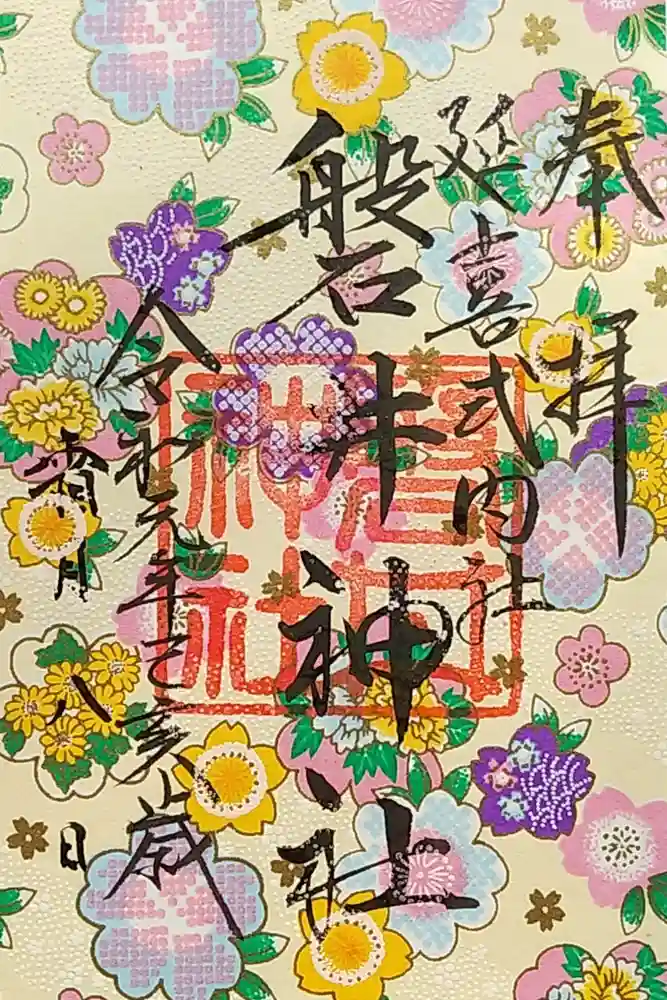 奉拝
延喜式内社
磐井神社
令和元年己亥歳
霜月八日
磐井神社